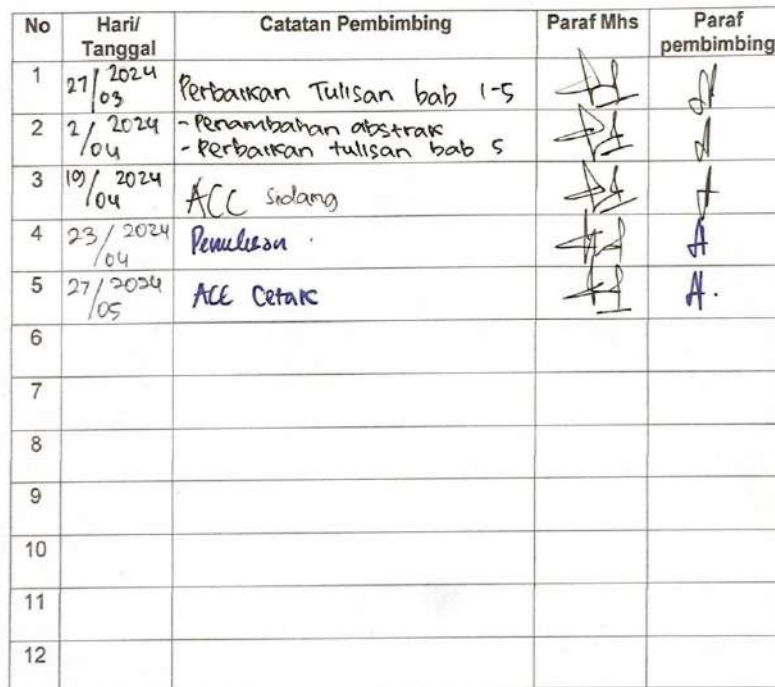 No Hari/ Tanggal Catatan Pembimbing Paraf Mhs Paraf pembimbing
1 27/03 2024 Perbaikan Tulisan bab 1-5
2 2/04 2024 - Penambahan abstrak
- Perbaikan tulisan bab 5
3 19/04 2024 ACC Sidang
4 23/04 2024 Penulisan
5 27/05 2024 ACC Cetak
6
7
8
9
10
11
12